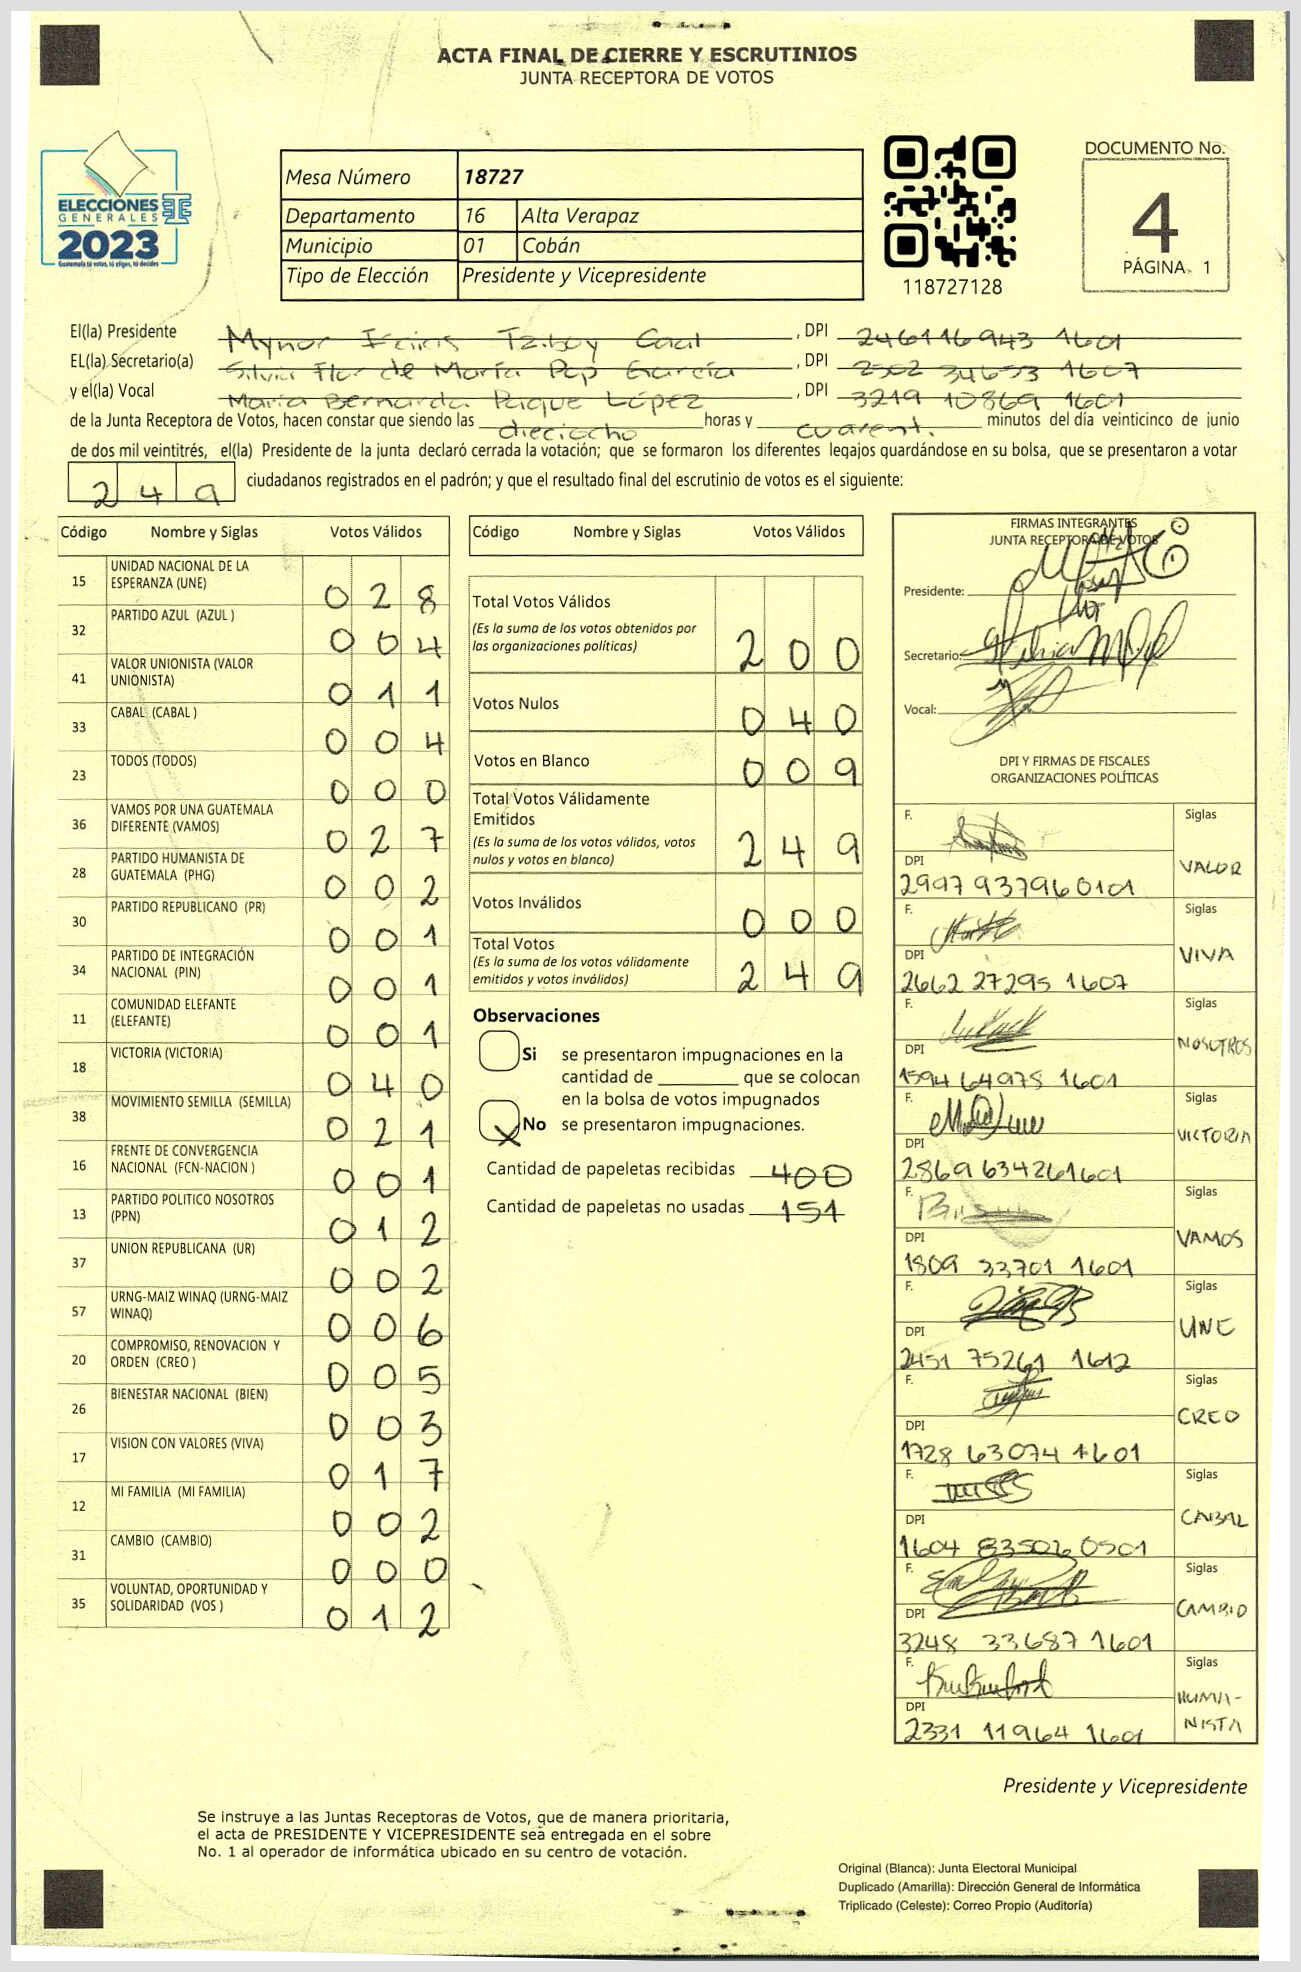 ACTA FINAL DE CIERRE Y ESCRUTINIOS
JUNTA RECEPTORA DE VOTOS
ELECCIONES
GENERALES
2023
Guatemala tú votas, tú eliges, tú decides
Mesa Número 18727
Departamento 16 Alta Verapaz
Municipio 01 Cobán
Tipo de Elección Presidente y Vicepresidente
118727128
DOCUMENTO No.
4
PÁGINA 1
El(la) Presidente Mynor Tziboy Caal, DPI 246116943 1601
EL(la) Secretario(a) Silvia Flor de María Pop García, DPI 2502 34653 1607
y el(la) Vocal María Bernarda Paque López, DPI 3219 10869 1601
de la Junta Receptora de Votos, hacen constar que siendo las dieciocho horas y cuarent. minutos del día veinticinco de junio
de dos mil veintitrés, el(la) Presidente de la junta declaró cerrada la votación; que se formaron los diferentes legajos guardándose en su bolsa, que se presentaron a votar
249 ciudadanos registrados en el padrón; y que el resultado final del escrutinio de votos es el siguiente:
Código Nombre y Siglas Votos Válidos
15 UNIDAD NACIONAL DE LA ESPERANZA (UNE) 028
32 PARTIDO AZUL (AZUL ) 004
41 VALOR UNIONISTA (VALOR UNIONISTA) 011
33 CABAL (CABAL ) 004
23 TODOS (TODOS) 000
36 VAMOS POR UNA GUATEMALA DIFERENTE (VAMOS) 027
28 PARTIDO HUMANISTA DE GUATEMALA (PHG) 002
30 PARTIDO REPUBLICANO (PR) 001
34 PARTIDO DE INTEGRACIÓN NACIONAL (PIN) 001
11 COMUNIDAD ELEFANTE (ELEFANTE) 001
18 VICTORIA (VICTORIA) 040
38 MOVIMIENTO SEMILLA (SEMILLA) 021
16 FRENTE DE CONVERGENCIA NACIONAL (FCN-NACION ) 001
13 PARTIDO POLITICO NOSOTROS (PPN) 012
37 UNION REPUBLICANA (UR) 002
57 URNG-MAIZ WINAQ (URNG-MAIZ WINAQ) 006
20 COMPROMISO, RENOVACION Y ORDEN (CREO ) 005
26 BIENESTAR NACIONAL (BIEN) 003
17 VISION CON VALORES (VIVA) 017
12 MI FAMILIA (MI FAMILIA) 002
31 CAMBIO (CAMBIO) 000
35 VOLUNTAD, OPORTUNIDAD Y SOLIDARIDAD (VOS ) 012
Código Nombre y Siglas Votos Válidos
Total Votos Válidos
(Es la suma de los votos obtenidos por
las organizaciones políticas) 200
Votos Nulos 040
Votos en Blanco 009
Total Votos Válidamente
Emitidos
(Es la suma de los votos válidos, votos
nulos y votos en blanco) 249
Votos Inválidos 000
Total Votos
(Es la suma de los votos válidamente
emitidos y votos inválidos) 249
Observaciones
Si se presentaron impugnaciones en la
cantidad de ________ que se colocan
en la bolsa de votos impugnados
X No se presentaron impugnaciones.
Cantidad de papeletas recibidas 400
Cantidad de papeletas no usadas 151
FIRMAS INTEGRANTES
JUNTA RECEPTORA DE VOTOS
Presidente:
Secretario:
Vocal:
DPI Y FIRMAS DE FISCALES
ORGANIZACIONES POLÍTICAS
F. Siglas
DPI VALOR
2997 937960101
F. Siglas
DPI VIVA
2662 27295 1607
F. Siglas
DPI NOSOTROS
1594 64978 1601
F. Siglas
DPI VICTORIA
2869 634261601
F. Siglas
DPI VAMOS
1809 33701 1601
F. Siglas
DPI UNE
2451 75261 1612
F. Siglas
DPI CREO
1728 63074 1601
F. Siglas
DPI CABAL
1604 83502 0501
F. Siglas
DPI CAMBIO
3248 33687 1601
F. Siglas
DPI HUMA-
NISTA
2331 11964 1601
Presidente y Vicepresidente
Se instruye a las Juntas Receptoras de Votos, que de manera prioritaria,
el acta de PRESIDENTE Y VICEPRESIDENTE sea entregada en el sobre
No. 1 al operador de informática ubicado en su centro de votación.
Original (Blanca): Junta Electoral Municipal
Duplicado (Amarilla): Dirección General de Informática
Triplicado (Celeste): Correo Propio (Auditoría)